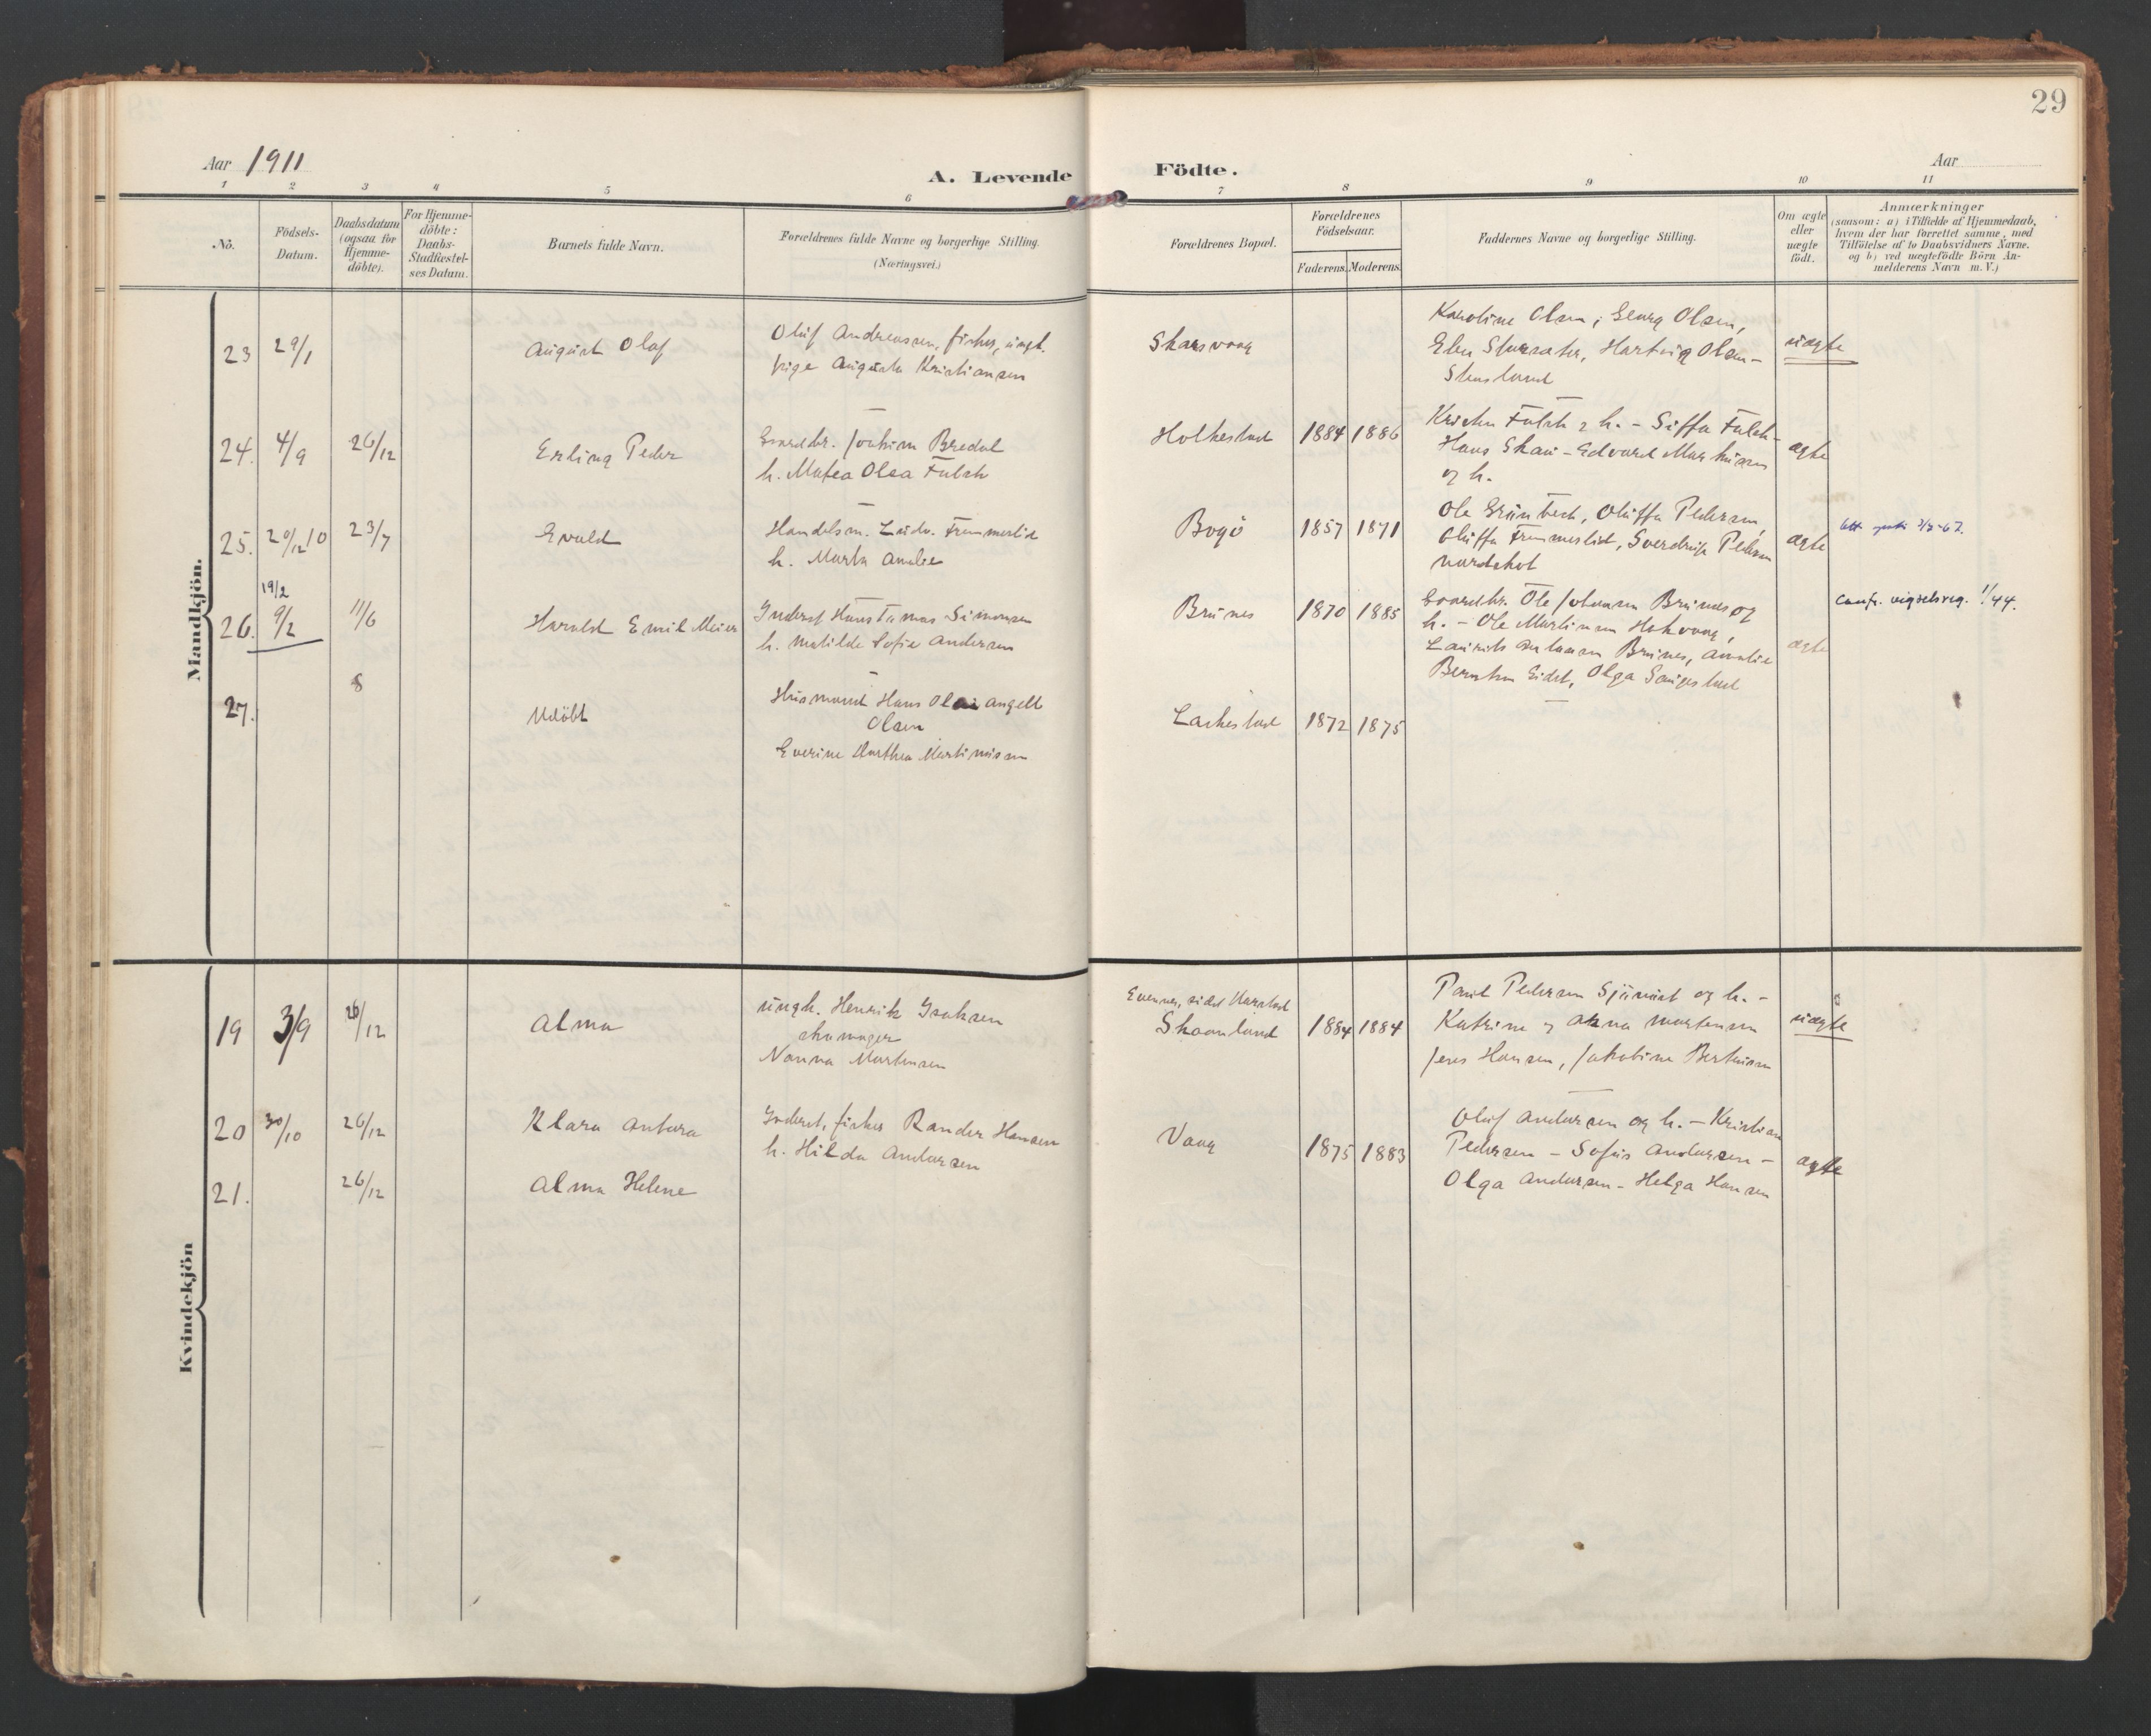 29
Aar 1911
Aar
A. Levende Födte.
1 2 3 4 5 6 7 8 9 10 11
Nö.
Födsels-
Datum.
Daabsdatum
(ogsaa for
Hjemme-
döbte).
For Hjemme-
döbte:
Daabs-
Stadfæstel-
ses Datum.
Barnets fulde Navn.
Forældrenes fulde Navne og borgerlige Stilling.
(Næringsvei.)
Forældrenes Bopæl.
Forældrenes
Födselsaar.
Faderens. Moderens.
Faddernes Navne og borgerlige Stilling.
Om ægte
eller
uægte
födt.
Anmærkninger
(saasom: a) i Tilfælde af Hjemmedaab,
hvem der har forrettet samme, med
Tilföielse af to Daabsvidners Navne.
og b) ved uægtefödte Börn An-
melderens Navn m. V.)
Mandkjön.
23 29/1
August Olaf
Oluf Andreassen, fisker, ungk.
pige Augusta Kristiansen
Skarsvaag
Karoline Olsen, Georg Olsen,
Hartvig Olsen -
uægte
24. 4/9 26/12
Erling Peder
Gaardbr. Joakim Bredal
h. Matea Olea Falch
Holkestad
1884 1886
Falch & h. - Siffa Falch -
Hans Skau - Edvard
og h.
ægte
25. 20/12 10 23/7
Evald
Handelsm. Ludv. Trummerlid
h. Marta Amalie
Bogö
1857 1871
Ole Grünbech, Oluffa Pedersen,
Oluffa Trummerlid, Sverdrup Pedersen
Nordskot
ægte
26. 19/2
9/2 11/6
Harald Emil Meier
Inderst Hans Tomas Simonsen
h. Matilde Sofie Andersen
Brunes
1870 1885
Gaardbr. Ole Johansen Brunes og
h. - Ole Martinsen
Laurits Johansen Brunes, Amalie
Eidet, Olga
ægte
Conf. vigselsreg. 1/44.
27. 8
Udöbt
Husmand Hans Olai Angell
Olsen
Everine Dorthea Martinussen
Laskestad
1872 1875
Kvindekjön
19 3/9 26/12
Alma
ungk. Henrik Isaksen
skomager
Nanna Martensen
Evenes,
Skaanland
1884 1884
Paul Pedersen og h. -
Katrine og Anna Martensen
Jens Hansen, Jakobine Berteussen
uægte
20 30/10 26/12
Klara Antora
Inderst, fisker Rander Hansen
h. Hilda Andersen
Vaag
1875 1883
Oluf Andersen og h. - Kristian
Pedersen - Sofus Andersen -
Olga Andersen - Helga Hansen
ægte
21. 26/12
Alma Helene